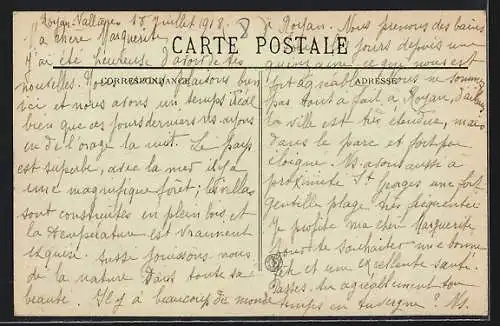 Royan-Vallières 18 juillet 1918.
Ma chère Marguerite
J'ai été heureuse d'avoir de tes
CARTE POSTALE
CORRESPONDANCE
nouvelles. Nous bien
ici et nous avons un temps idéal
bien que ces jours derniers ns ayons
eu de l'orage la nuit. Le pays
est superbe, avec la mer il y a
une magnifique forêt; les villas
sont construites en plein bois et
la température est vraiment
exquise. Aussi jouissons nous
de la nature dans toute sa
beauté. Il y a beaucoup de monde
à Royan. Nous prenons des bains
les jours depuis une
quinzaine ce que nous est
ADRESSE
fort agréable. ns ne sommes
pas tout à fait à Royan, d'ailleurs
la ville est très étendue, mais
dans le parc et fort peu
éloigné. Ns avons aussi à
proximité St Georges une fort
gentille plage très fréquentée
Je profite ma chère Marguerite
pour te souhaiter une bonne
fête et une excellente santé.
Passes-tu agréablement ton
temps en Auvergne? Ns